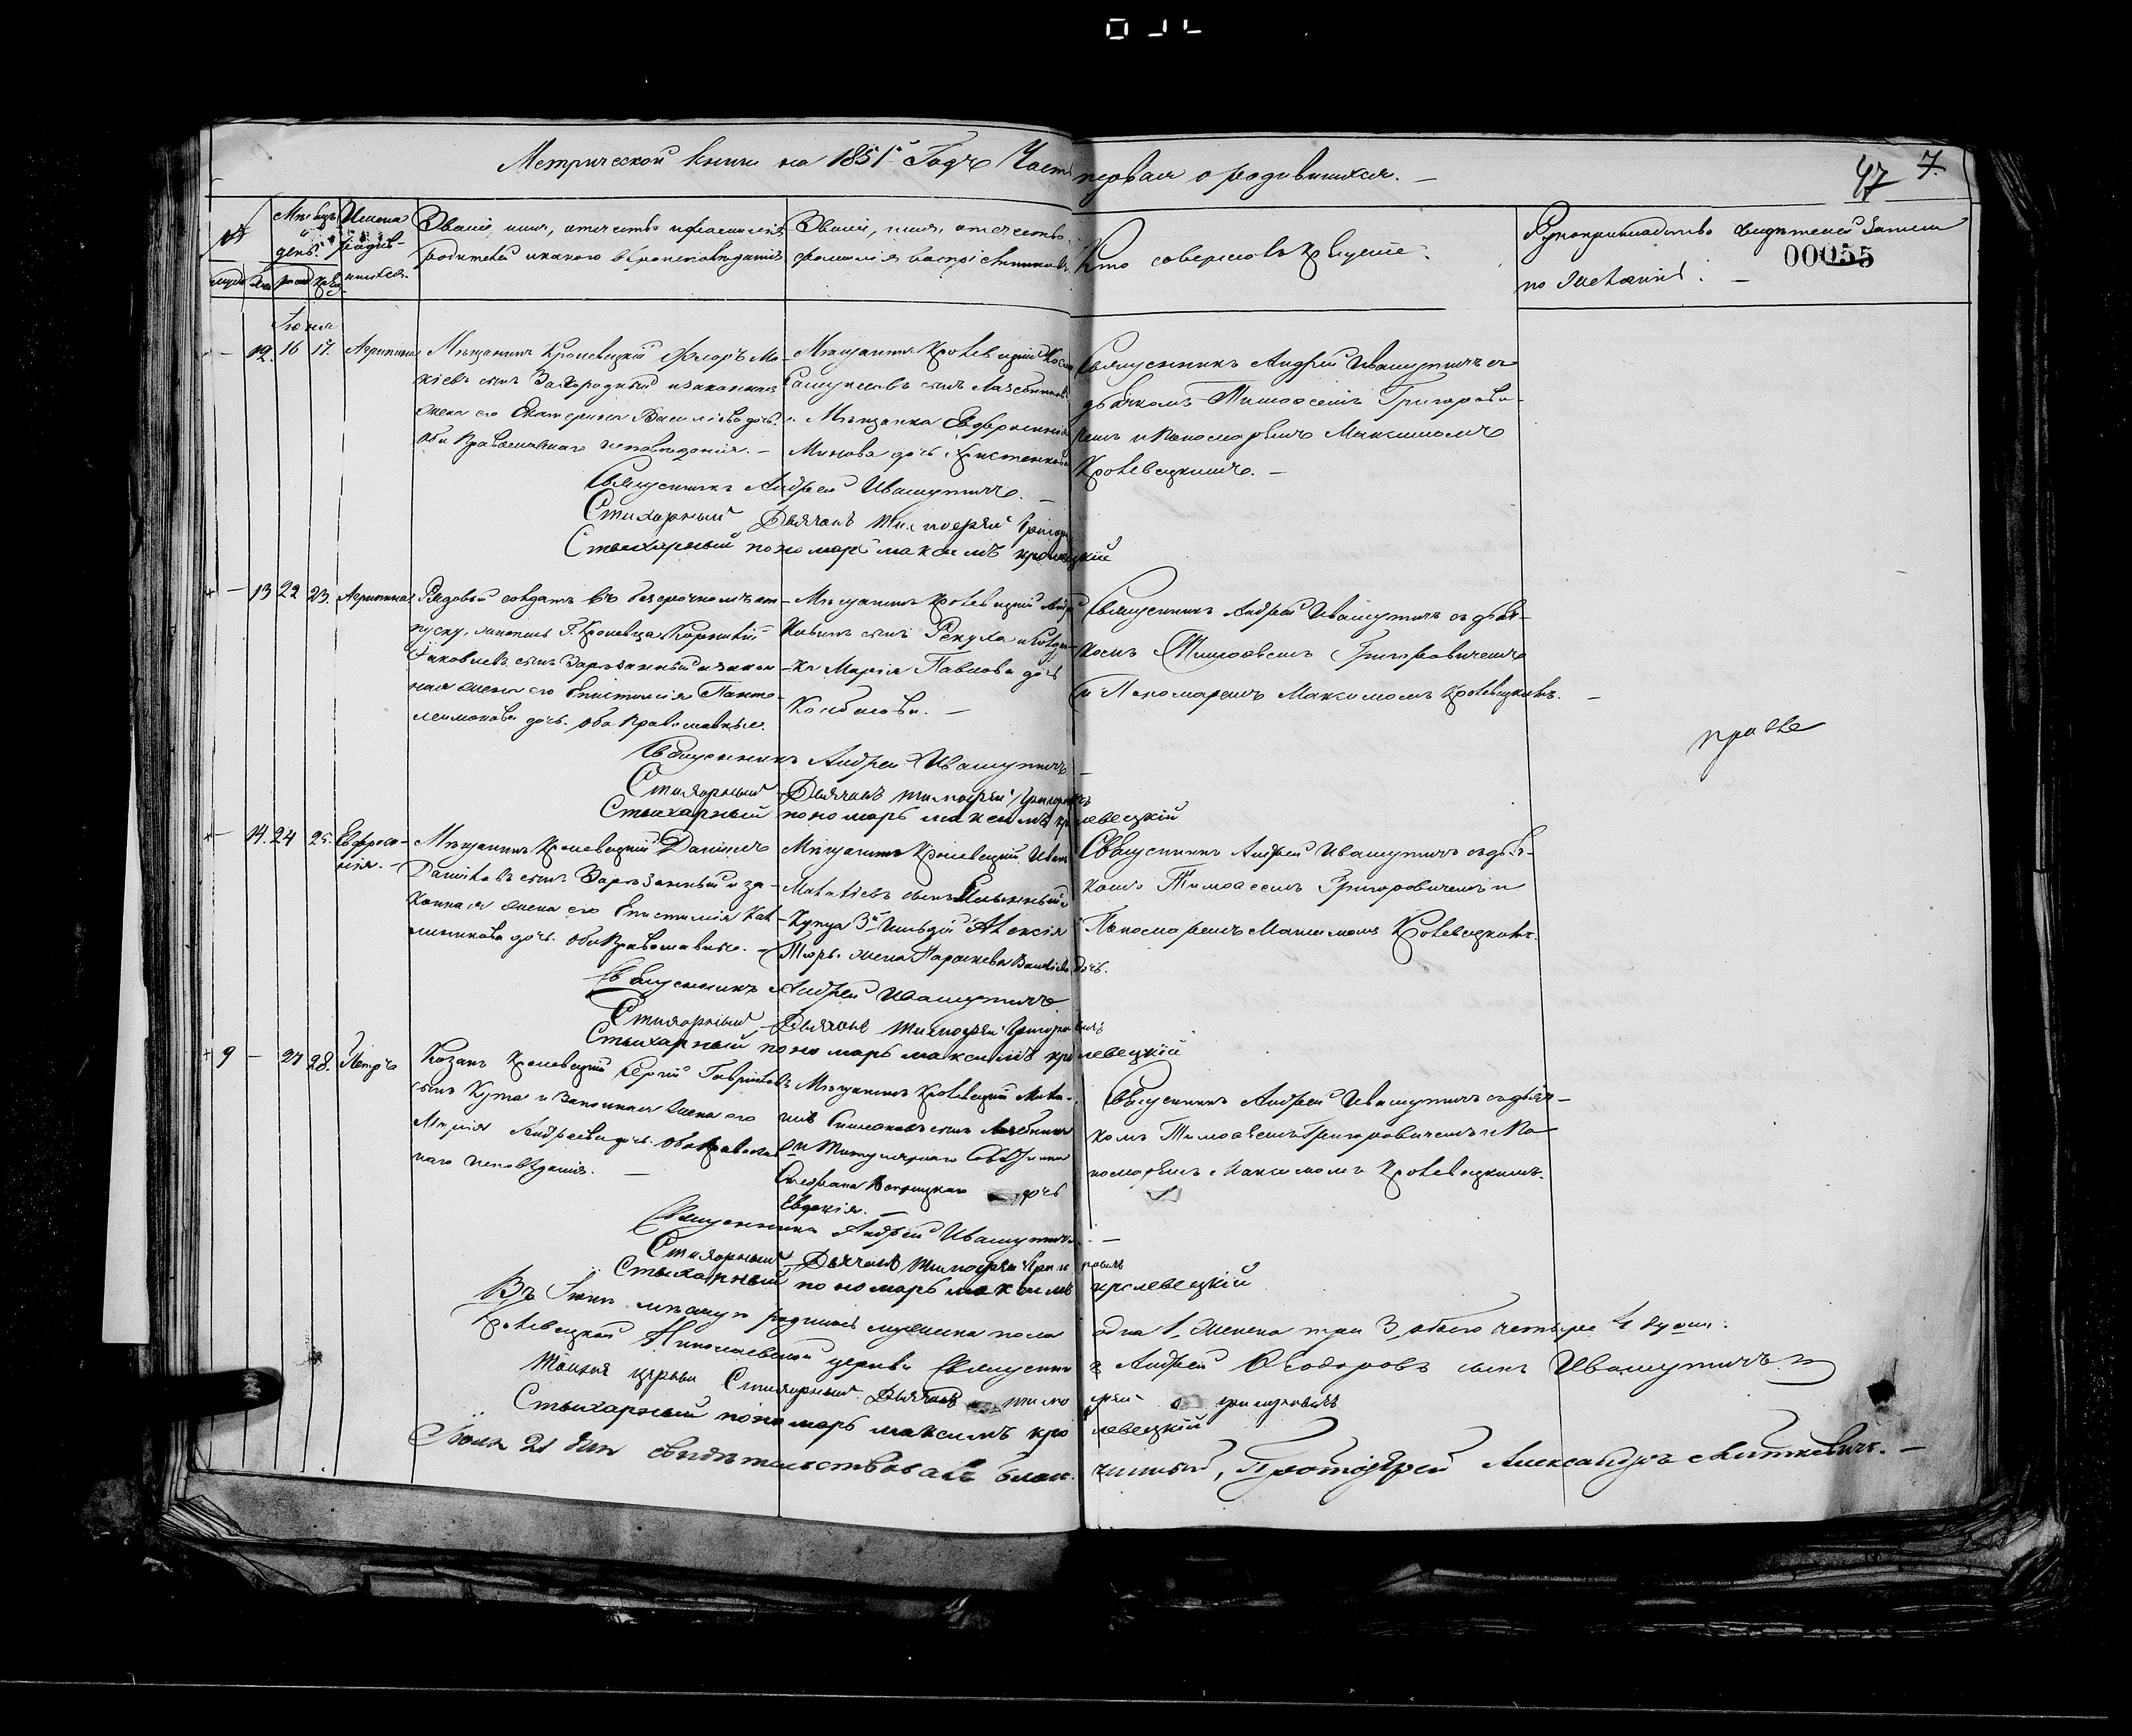 Метрической книги на 1851й Годъ Часть первая о родившихся. —
47 7.
00055
№
Мѣсяцъ и день.
Имена родив-
шихся.
Званіе, имя, отчество и фамилія
родителей и какого вѣроисповѣданія
Званіе, имя, отчество,
фамилія воспріемниковъ.
Кто совершалъ крещеніе.
Рукоприкладство свидѣтелей записи
по желанію. —
Іюня
12. 16 17. Агрипина
Мѣщанинъ Кролевецкій Фдоръ Мо-
кіевъ сынъ Загородній и законная
жена его Екатерина Васильева дочь.
Оба Православнаго исповѣданія. —
Мѣщанинъ Кролевецкій
сынъ
и Мѣщанка Евфросинія
дочь
Священникъ Андрей Ивашутичъ съ
дьячкомъ Тимоѳеемъ Григорови-
чемъ и Пономаремъ Максимомъ
Кролевецкимъ. —
Священникъ Андрей Ивашутичъ. —
Стихарный Дьячокъ Тимофей Григоро
Стыхарный пономарь максимъ кролевецкій
13 22 23. Агрипина
Рядовый солдатъ въ безсрочномъ от-
пуску, житель Г. Кролевца Корнилій
Яковлевъ сынъ и закон-
ная жена его Епистимія Панте-
леимонова дочь. Оба Православные.
Мѣщанинъ Кролевецкій Андрей
сынъ Репуха и Солдат-
ка Марія Павлова дочь
Колбасова. —
Священникъ Андрей Ивашутичъ съ дьяч-
комъ Тимоѳеемъ Григоровичемъ
и Пономаремъ Максимомъ Кролевецкимъ. —
Священникъ Андрей Ивашутичъ —
Стихарный Дьячокъ тимофей Григоровичъ
Стыхарный пономарь максимъ кролевецкій
14. 24 25. Евфроси-
нія. —
Мѣщанинъ Кролевецкій Даніилъ
Даниловъ сынъ и за-
конная жена его Епистимія Кал-
линикова дочь. Оба Православные. —
Мѣщанинъ Кролевецкій Иванъ
сынъ
Купца 3й Гильдіи Алексія
жена Параскева дочь.
Священникъ Андрей Ивашутичъ съ дьяч-
комъ Тимоѳеемъ Григоровичемъ и
Пономаремъ Максимомъ Кролевецкимъ.
Священникъ Андрей Ивашутичъ
Стихарный Дьячокъ тимофей Григоровичъ
Стыхарный пономарь максимъ кролевецкій
9 — 27 28. Петръ
Козакъ Кролевецкій Сергій Гавріиловъ
сынъ Кута и Законная жена его
Марія Андреева дочь. Оба Православ-
наго Исповѣданія. —
Мѣщанинъ Кролевецкій
сынъ
и Титулярнаго Совѣтника
Стефана дочь
Евдокія.
Священникъ Андрей Ивашутичъ съ дьяч-
комъ Тимоѳеемъ Григоровичемъ и По-
номаремъ Максимомъ Кролевецкимъ.
Священникъ Андрей Ивашутичъ. —
Стихарный Дьячокъ тимофей Григоровичъ
Стыхарный пономарь максимъ кролевецкій
Въ Іюнѣ мѣсяцѣ родилось мужеска пола одна 1, женска три 3, обоего четыре 4 души:
Кролевецкой Николаевской церкви Священникъ Андрей Ѳеодоровъ сынъ Ивашутичъ
Тойжъ церкви Стихарный Дьячокъ тимофей григоровичъ
Стыхарный пономарь максимъ кролевецкій
Іюля 21 дня свидѣтельствовалъ благочинный, Протоіерей Александръ Миткевичъ. —